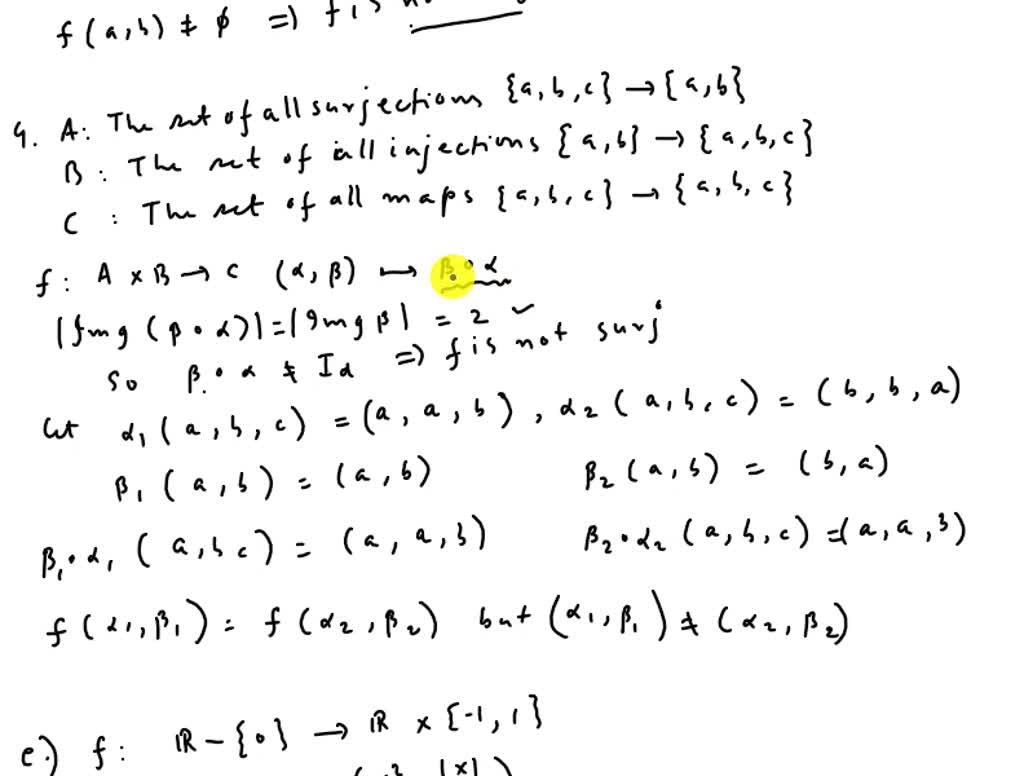 f(a,b) ≠ ϕ ⇒ f is
9. A: The set of all surjections {a,b,c} → {a,b}
B: The set of all injections {a,b} → {a,b,c}
C: The set of all maps {a,b,c} → {a,b,c}
f: A × B → C (α,β) ↦ β∘α
|Img(β∘α)| = |Img β| = 2 ✓
So β∘α ≠ Id ⇒ f is not surj
Let α₁(a,b,c) = (a,a,b), α₂(a,b,c) = (b,b,a)
β₁(a,b) = (a,b) β₂(a,b) = (b,a)
β₁∘α₁(a,b c) = (a,a,b) β₂∘α₂(a,b,c) = (a,a,b)
f(α₁,β₁) = f(α₂,β₂) but (α₁,β₁) ≠ (α₂,β₂)
e.) f: ℝ-{0} → ℝ × {-1,1}